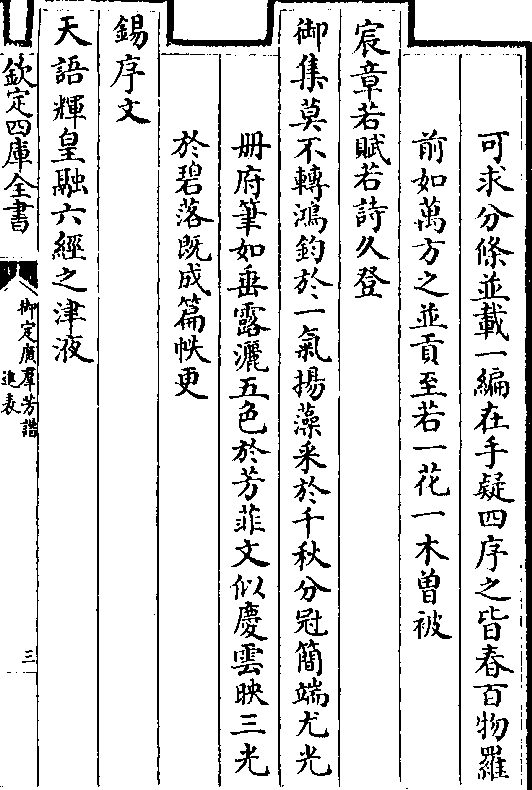 可求分條並載一編在手疑四序之皆春百物羅
前如萬方之並貢至若一花一木曽被
宸章若賦若詩久登
御集莫不轉鴻鈞於一氣揚藻采於千秋分冠簡端尤光
冊府筆如垂露灑五色於芳菲文似慶雲映三光
於碧落既成篇帙更
錫序文
天語輝皇融六經之津液
欽定四庫全書
御定廣群芳譜
進表
三